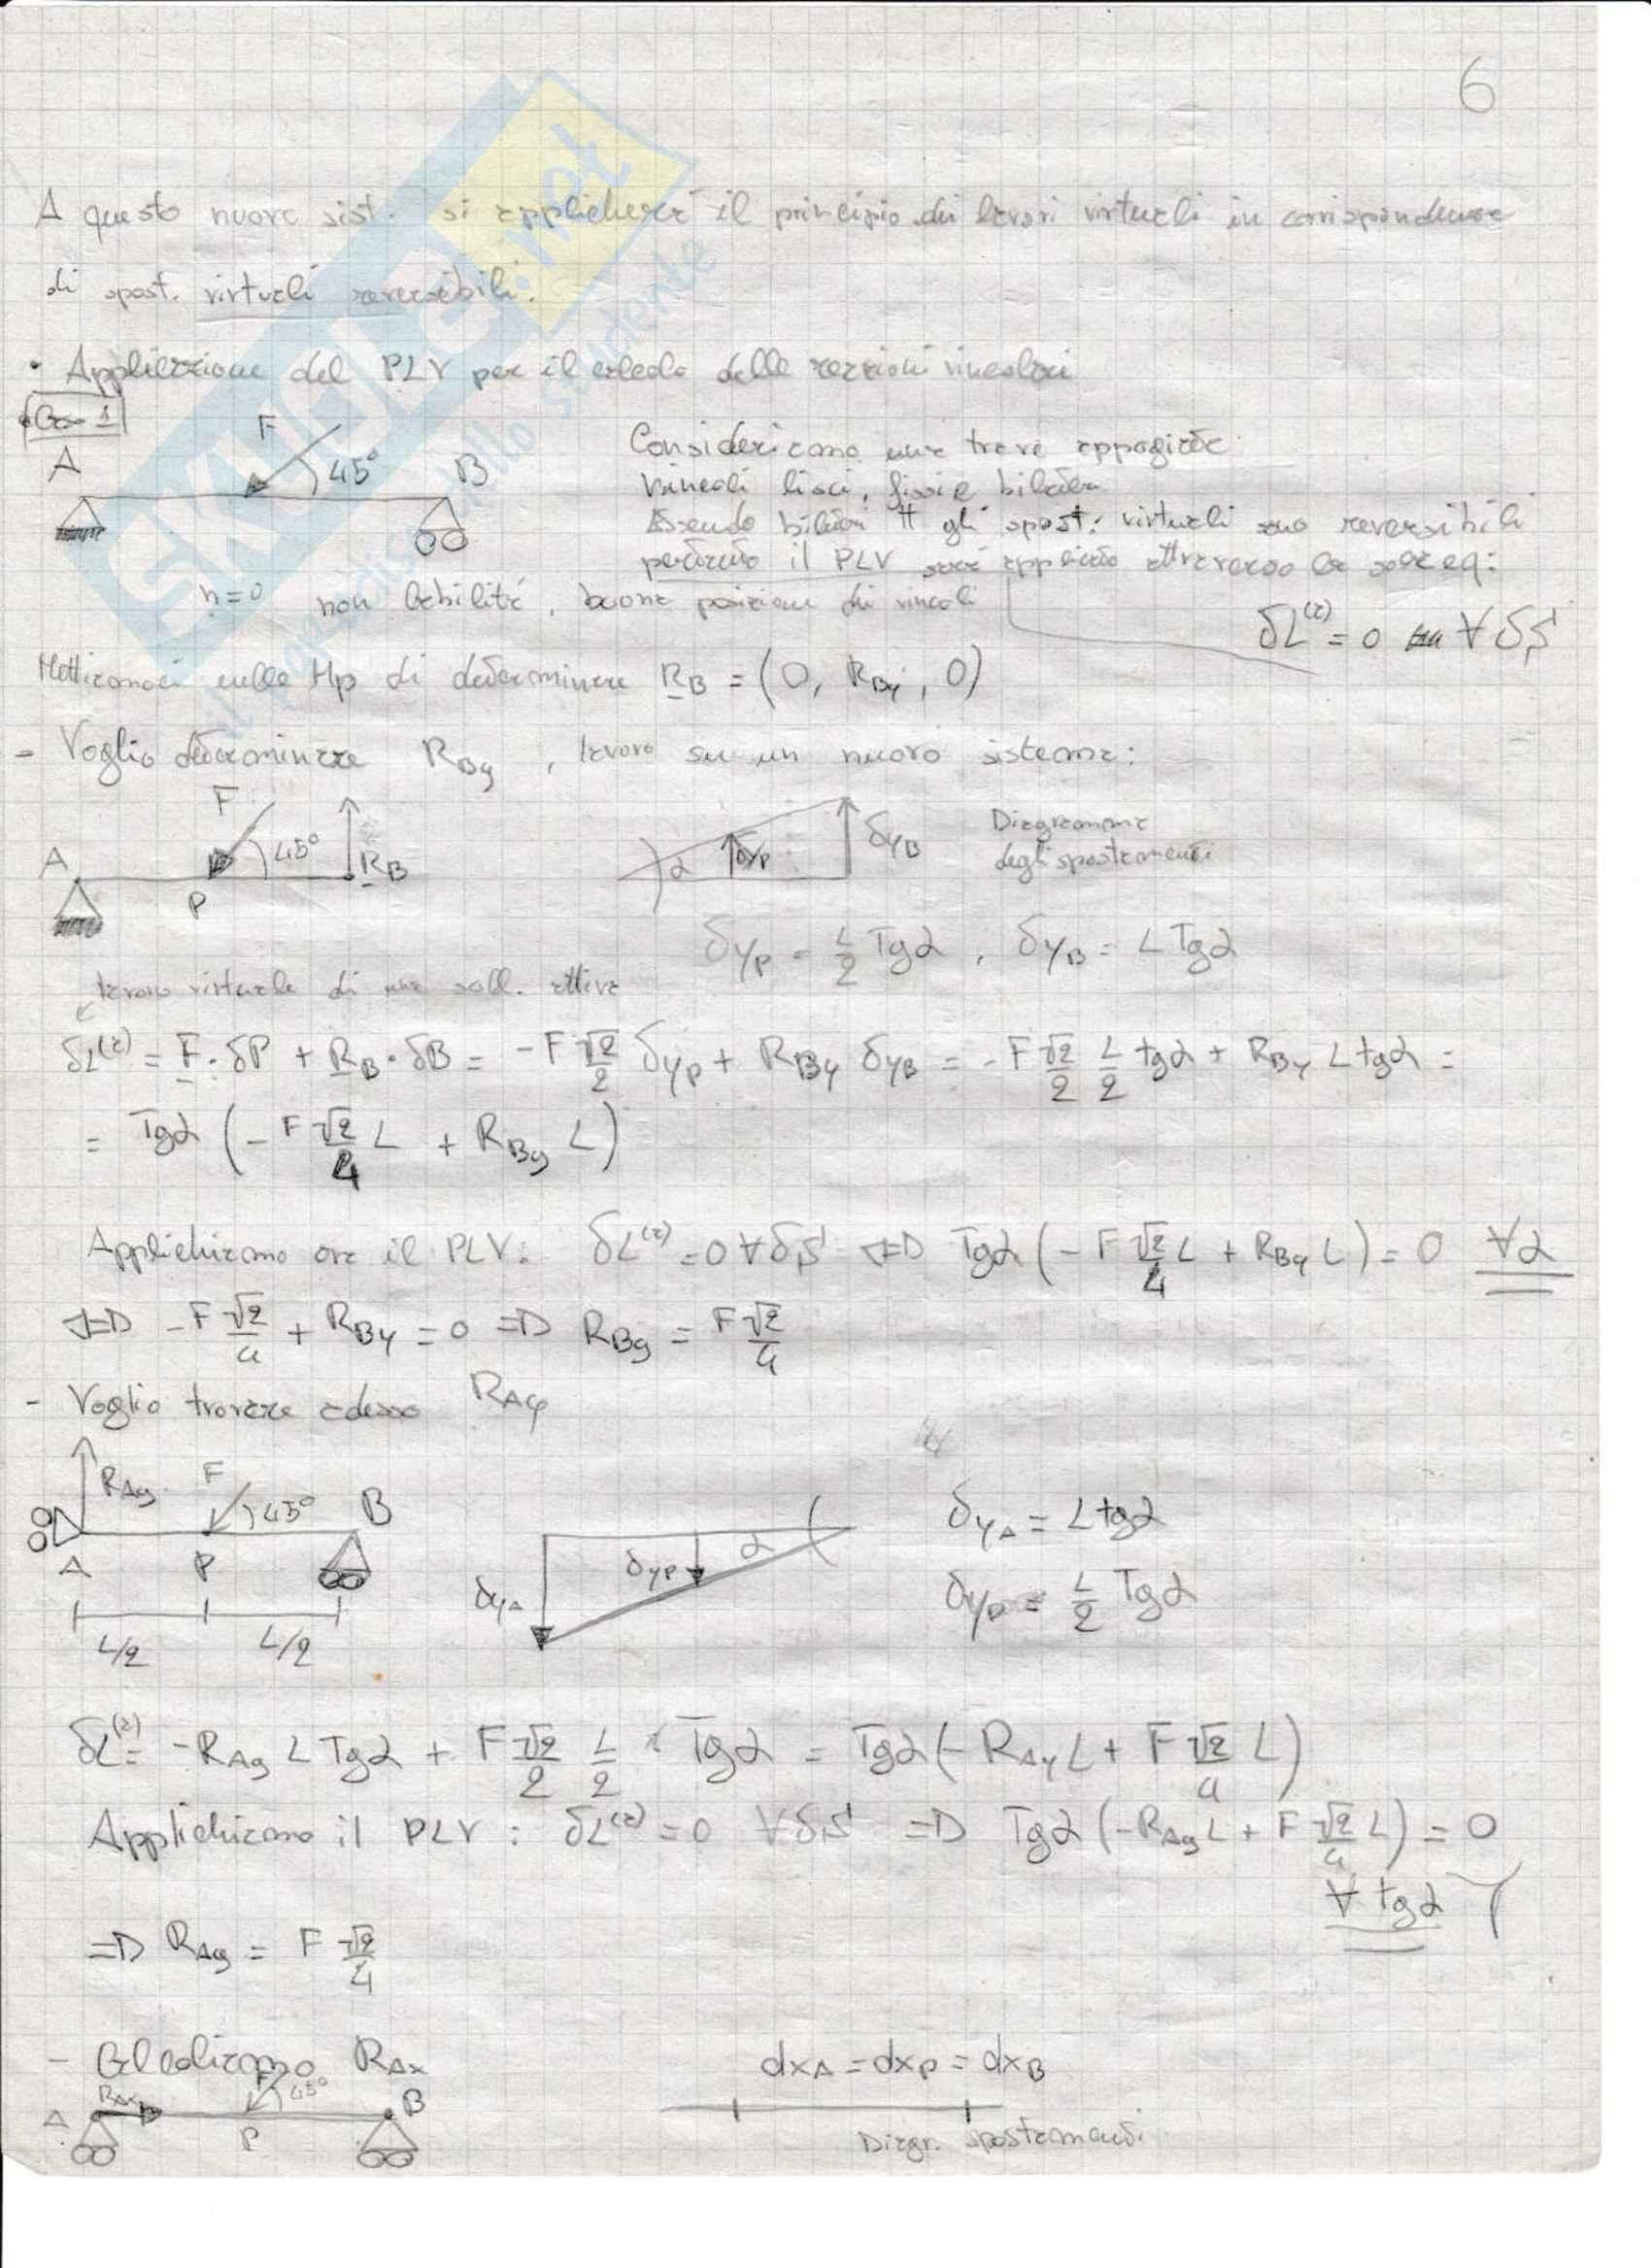 6
A questo nuovo sist. si applicherà il principio dei lavori virtuali in corrispondenza
di spost. virtuali reversibili.
• Applicazione del PLV per il calcolo delle reazioni vincolari
Caso 1
A F 45° B
Consideriamo una trave appoggiata
vincoli lisci, fissi e bilateri
Essendo bilateri tt gli spost. virtuali sono reversibili
pertanto il PLV sarà applicato attraverso la sola eq:
n=0 non labilità, buona posizione dei vincoli
δL^(a) = 0 ∀ δS
Mettiamoci nella Hp di determinare R_B = (0, R_By, 0)
- Voglio determinare R_By, lavoro su un nuovo sistema:
A F 45° R_B P
α δy_P δy_B
Diagramma
degli spostamenti
δy_P = L/2 Tgα , δy_B = L Tgα
lavoro virtuale di una soll. attiva
δL^(a) = F · δP + R_B · δB = -F √2/2 δy_P + R_By δy_B = -F √2/2 L/2 tgα + R_By L tgα =
= Tgα (-F √2/4 L + R_By L)
Applichiamo ora il PLV: δL^(a) = 0 ∀ δS <=> Tgα (-F √2/4 L + R_By L) = 0 ∀α
<=> -F √2/4 + R_By = 0 => R_By = F √2/4
- Voglio trovare adesso R_Ay
R_Ay F 45° B
A P
L/2 L/2
δy_A δy_P α
δy_A = L tgα
δy_P = L/2 Tgα
δL^(a) = -R_Ay L Tgα + F √2/2 L/2 Tgα = Tgα (-R_Ay L + F √2/4 L)
Applichiamo il PLV: δL^(a) = 0 ∀ δS => Tgα (-R_Ay L + F √2/4 L) = 0
∀ tgα
=> R_Ay = F √2/4
- Calcoliamo R_Ax
A R_Ax F 45° B
P
dx_A = dx_P = dx_B
Diagr. spostamenti
SKUOLA.net
il paradiso dello studente